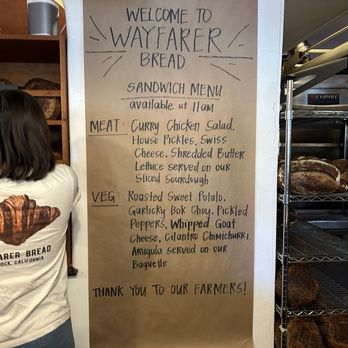 WELCOME TO
WAYFARER
BREAD
SANDWICH MENU
available at 11am
MEAT: CURRY CHICKEN SALAD,
HOUSE PICKLES, SWISS
CHEESE, SHREDDED BUTTER
LETTUCE SERVED ON OUR
SLICED SOURDOUGH
VEG: ROASTED SWEET POTATO,
GARLICKY BOK CHOY, PICKLED
PEPPERS, WHIPPED GOAT
CHEESE, CILANTRO CHIMICHURRI,
ARUGULA SERVED ON OUR
BAGUETTE
THANK YOU TO OUR FARMERS!
FARER BREAD
OCK, CALIFORNIA
EMPIRE